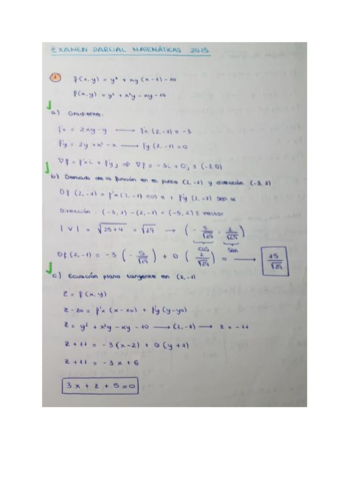 EXAMEN PARCIAL MATEMÁTICAS 2015
1 f(x,y) = y² + xy(x-1) - 10
f(x,y) = y² + x²y - xy - 10
a) Gradiente.
f'x = 2xy - y → f'x(2,-1) = -3
f'y = 2y + x² - x → f'y(2,-1) = 0
∇f = f'x i + f'y j ⇒ ∇f = -3i + 0j = (-3,0)
b) Derivada de la función en el punto (2,-1) y dirección
Df(2,-1) = f'x(2,-1) cos α + f'y(2,-1) sen α
|v| = √25+4 = √29 → (-5/√29, 2/√29)
cos sen
Df(2,-1) = -3(-5/√29) + 0(2/√29) = → 15/√29
c) Ecuación plano tangente en (2,-1)
z = f(x,y)
z - z0 = f'x(x-x0) + f'y(y-y0)
z = y² + x²y - xy - 10 → (2,-1) → z = -11
z + 11 = -3(x-2) + 0(y+1)
z + 11 = -3x + 6
3x + z + 5 = 0